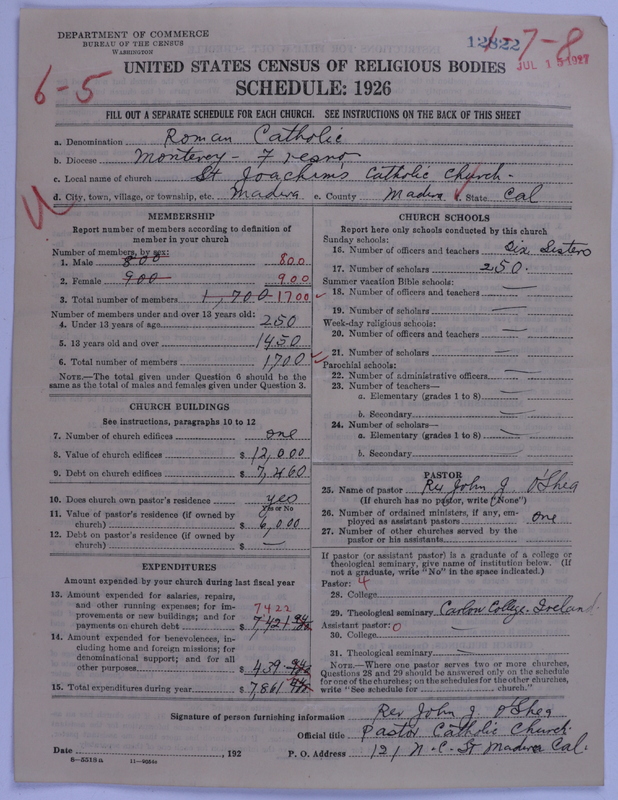 DEPARTMENT OF COMMERCE
BUREAU OF THE CENSUS
WASHINGTON
12822
1-7-8
JUL 15 1927
6-5
UNITED STATES CENSUS OF RELIGIOUS BODIES
SCHEDULE: 1926
FILL OUT A SEPARATE SCHEDULE FOR EACH CHURCH. SEE INSTRUCTIONS ON THE BACK OF THIS SHEET
a. Denomination Roman Catholic
b. Diocese Monterey - Fresno
c. Local name of church St Joachim's Catholic Church -
d. City, town, village, or township, etc. Madera e. County Madera f. State Cal
MEMBERSHIP
Report number of members according to definition of
member in your church
Number of members, by sex:
1. Male 800 800
2. Female 900 900
3. Total number of members 1,700 1700
Number of members under and over 13 years old:
4. Under 13 years of age 250
5. 13 years old and over 1450
6. Total number of members 1700
NOTE.—The total given under Question 6 should be the
same as the total of males and females given under Question 3.
CHURCH BUILDINGS
See instructions, paragraphs 10 to 12
7. Number of church edifices one
8. Value of church edifices $ 12,000
9. Debt on church edifices $ 7,460
10. Does church own pastor's residence yes
Yes or No
11. Value of pastor's residence (if owned by
church) $ 6,000
12. Debt on pastor's residence (if owned by
church) $ —
EXPENDITURES
Amount expended by your church during last fiscal year
13. Amount expended for salaries, repairs,
and other running expenses; for im-
provements or new buildings; and for
payments on church debt $ 7,421
7422
14. Amount expended for benevolences, in-
cluding home and foreign missions; for
denominational support; and for all
other purposes $ 439
15. Total expenditures during year $ 7,861
CHURCH SCHOOLS
Report here only schools conducted by this church
Sunday schools:
16. Number of officers and teachers Six Sisters
17. Number of scholars 250.
Summer vacation Bible schools:
18. Number of officers and teachers —
19. Number of scholars —
Week-day religious schools:
20. Number of officers and teachers —
21. Number of scholars —
Parochial schools:
22. Number of administrative officers —
23. Number of teachers—
a. Elementary (grades 1 to 8) —
b. Secondary —
24. Number of scholars—
a. Elementary (grades 1 to 8) —
b. Secondary —
PASTOR
25. Name of pastor Rev John J O'Shea
(If church has no pastor, write "None")
26. Number of ordained ministers, if any, em-
ployed as assistant pastors one
27. Number of other churches served by the
pastor or his assistants
If pastor (or assistant pastor) is a graduate of a college or
theological seminary, give name of institution below. (If
not a graduate, write "No" in the space indicated.)
Pastor: 4
28. College
29. Theological seminary Carlow College. Ireland.
Assistant pastor: 0
30. College
31. Theological seminary —
NOTE.—Where one pastor serves two or more churches,
Questions 28 and 29 should be answered only on the schedule
for one of the churches; on the schedules for the other churches,
write "See schedule for church."
Signature of person furnishing information Rev John J. O'Shea
Official title Pastor Catholic Church
Date , 192 P. O. Address 121 N. C. St Madera Cal.
8-5518a 11-9034a